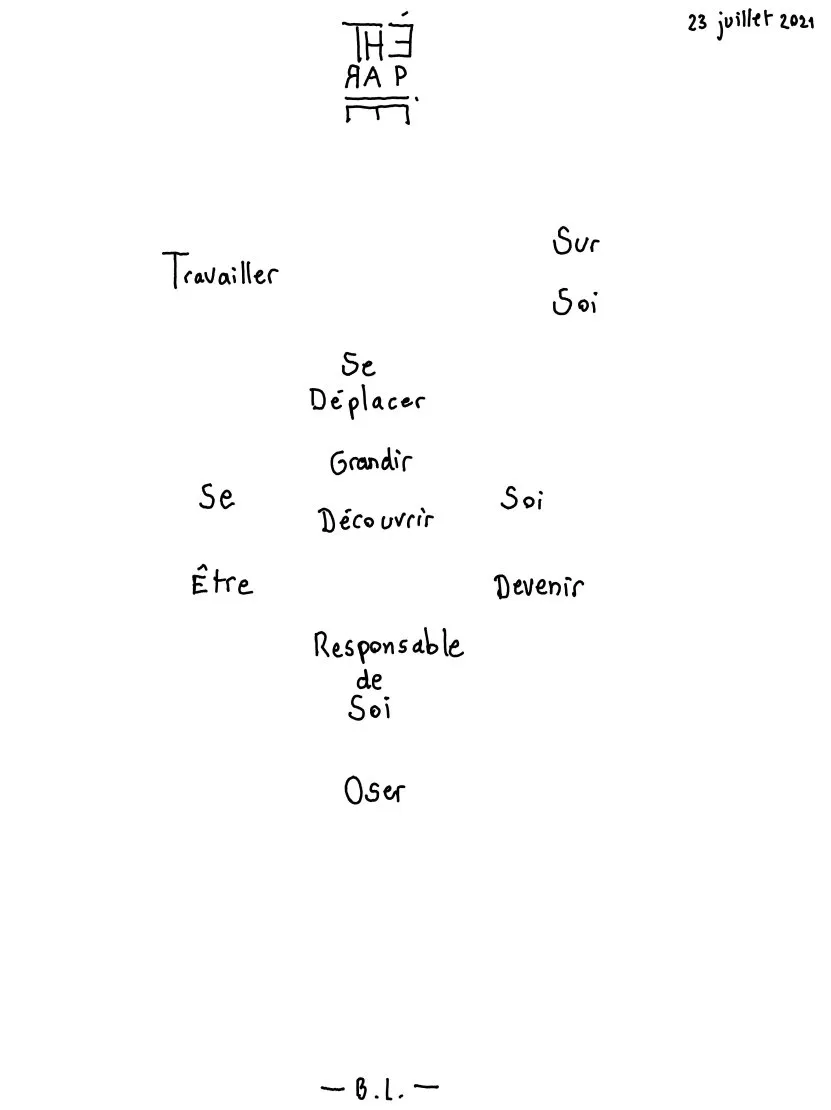 23 juillet 2021
THÉ
RAP
iE
Travailler
Sur
Soi
Se
Déplacer
Grandir
Se Découvrir Soi
Être Devenir
Responsable
de
Soi
Oser
— B.L. —